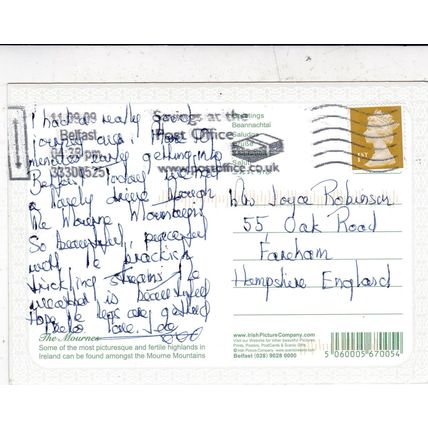 11.09.09
Belfast
11.39 pm
33300525
Savings at the
Post Office
www.postoffice.co.uk
Greetings
Beannachtaí
Saludos
I had a really good
journey over. Here 10
minutes early getting into
Belfast. Today
a lovely drive through
the Mourne Mountains
So beautiful, peaceful
with the
trickling streams. The
weather is beautiful
Hope legs are
Love
The Mournes
Some of the most picturesque and fertile highlands in
Ireland can be found amongst the Mourne Mountains
1ST
Mrs Joyce Robinson
55 Oak Road
Fareham
Hampshire England
www.IrishPictureCompany.com
Visit our Website for other Beautiful Pictures
Prints, Posters, PostCards & Scenic Gifts
© Irish Picture Company
Belfast (028) 9028 0000
5 060005 670054